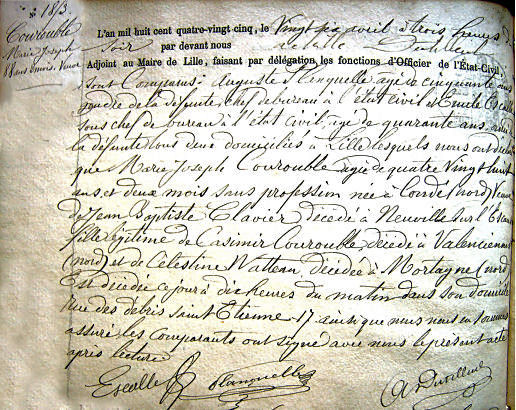 N° 1813
Courouble
Marie Joseph
88 ans 2 mois. Veuve
L'an mil huit cent quatre-vingt cinq, le Vingt six avril à trois heures du
soir par devant nous
Adjoint au Maire de Lille, faisant par délégation, les fonctions d'Officier de l'État-Civil,
sont Comparus: Auguste Planquelle âgé de cinquante ans
gendre de la défunte, Chef de bureau à l'état civil et Emile Escalle
sous chef de bureau à l'état civil, âgé de quarante ans, ami de
la défunte tous deux domiciliés à Lille lesquels nous ont déclaré
que Marie Joseph Courouble âgée de quatre Vingt huit
ans et deux mois sans profession née à Condé (nord) Veuve
de Jean Baptiste Clavier décédé à Neuville sur l'Escaut
fille légitime de Casimir Courouble, décédé à Valenciennes
(nord) et de Célestine Watteau, décédée à Mortagne (nord)
Est décédée ce jour à dix heures du matin dans son domicile
rue des débris Saint Etienne 17 ainsi que nous nous en sommes
assuré. les Comparants ont signé avec nous le présent acte
après lecture
Escalle Planquelle